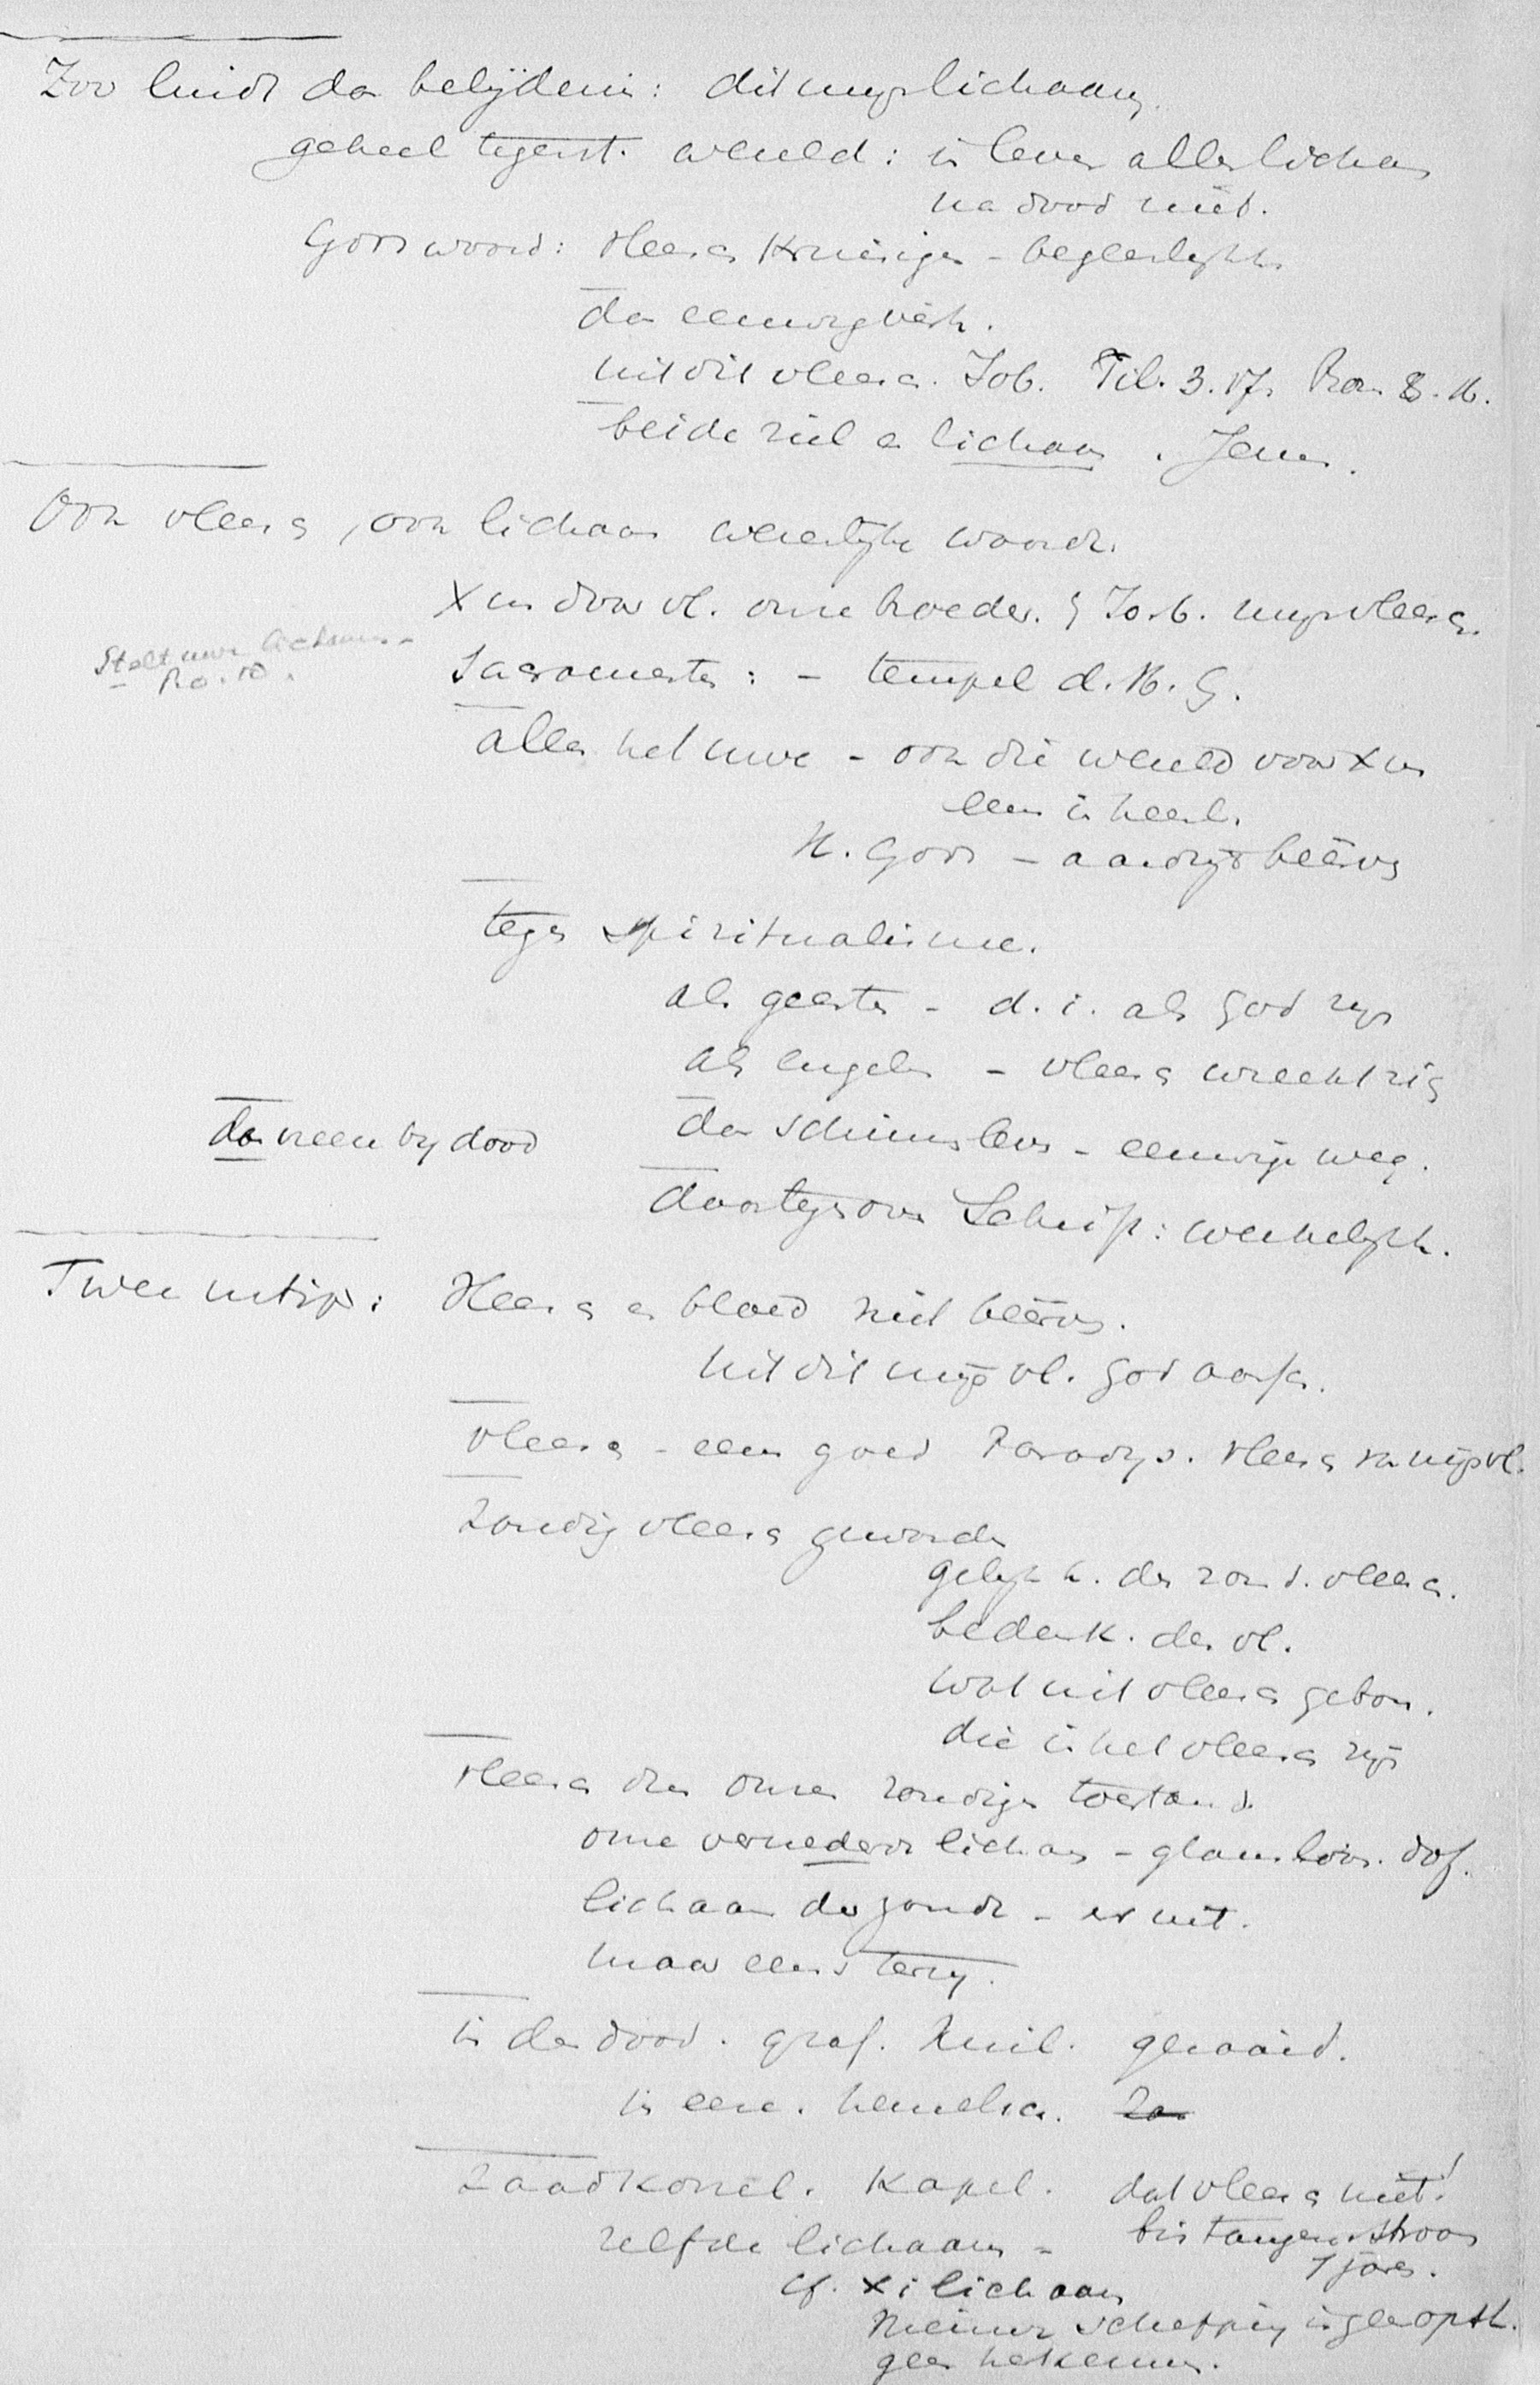 Zoo luidt da belijdenis: dit mijn lichaam.
geheel tegenst. wereld: in leven alles lichaam
na dood niet.
Gods woord: vleesch kruisigen - begeerlijkh.
dan eeuwig
uit dit vleesch. Job. Fil. 3.17. Rom 8.
beide ziel en lichaam. Jezus.
Ook vleesch, ook lichaam waarde.
X us door vl. onze broeder. mijn vleesch.
Stelt uwe lichamen -
Ro. 10.
Sacramenten: - tempel d. H. G.
alles het uwe - ook die wereld voor X us
eens in heerl.
K. Gods - aardrijk beërven
tegen spiritualisme.
als geesten - d. i. als God zijn
als engelen - vleesch
dan schimmleven - eeuwige weg.
dan heen bij dood
daartegenover Schrift: werkelijkh.
Twee uiterst: Vleesch en bloed niet beërven.
uit dit mijn vl. God aansch.
vleesch - eens goed Paradijs. vleesch van mijn vl.
zondig vleesch geworden
gelijkh. des zond. vleesch.
bedenk. des vl.
wat uit vleesch gebor.
die in het vleesch zijn
vleesch dus onze zondige toestand.
onze vernederd lichaam - glansloos. dof.
lichaam der zonde - er uit.
maar eens terug.
in den dood. graf. kuil. gezaaid.
in eere. hemelsch.
zaadkorrel. kapel. dat vleesch niet!
zelfde lichaam =
7 jaren.
cf. Xi lichaam
nieuwe schepping is geen opst.
geen herkennen.